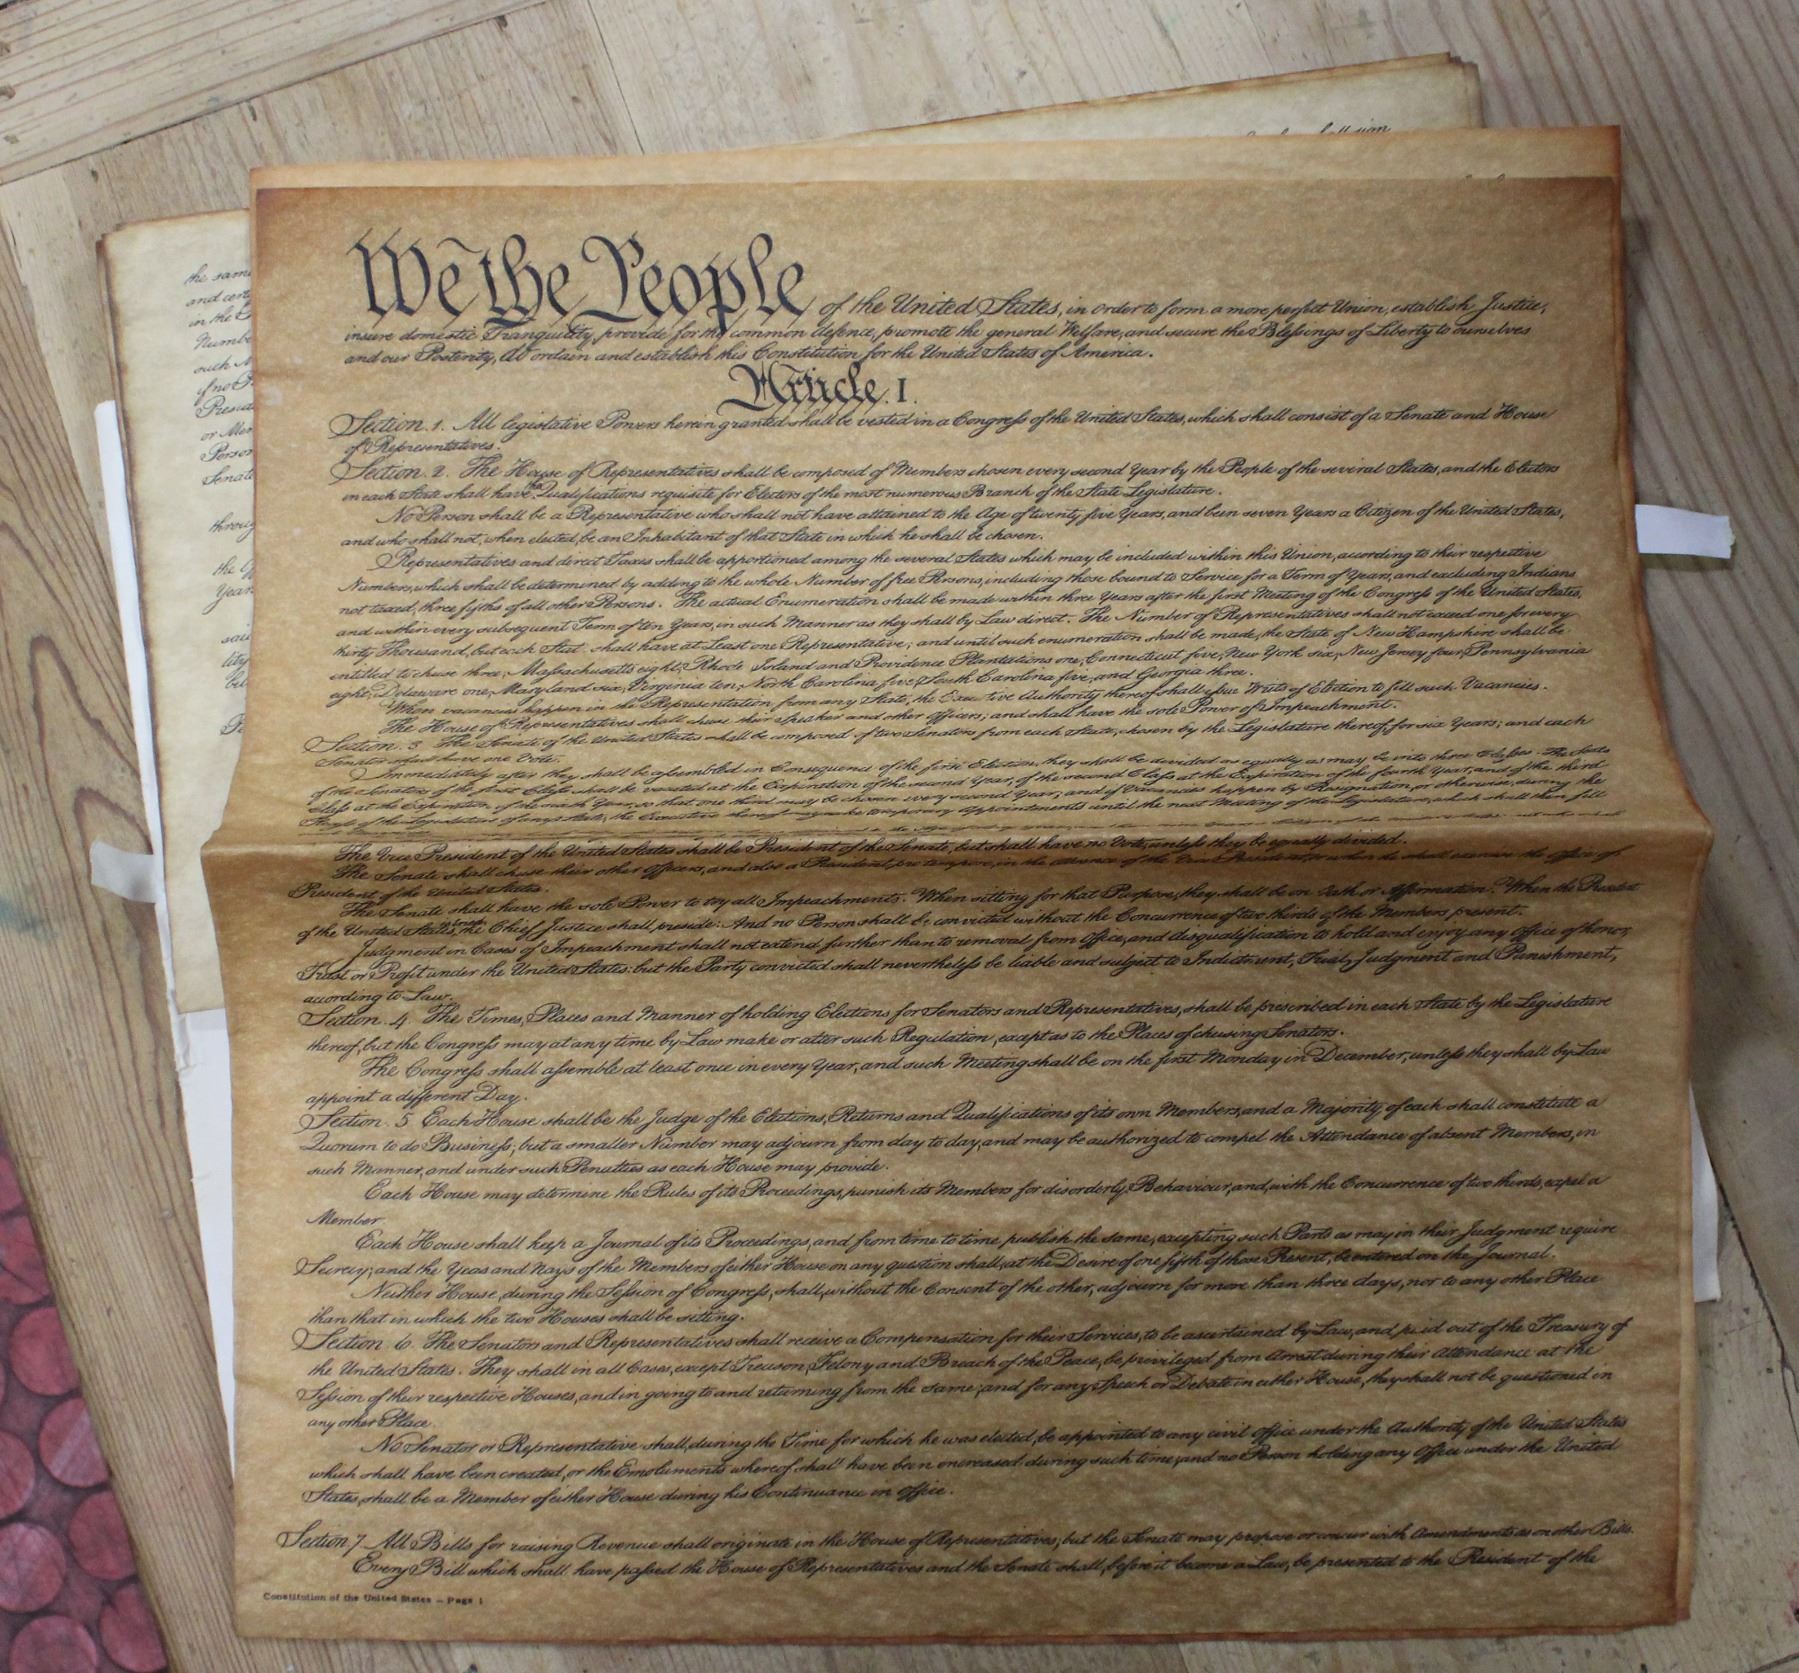 We the People of the United States, in Order to form a more perfect Union, establish Justice,
insure domestic Tranquility, provide for the common defence, promote the general Welfare, and secure the Blessings of Liberty to ourselves
and our Posterity, do ordain and establish this Constitution for the United States of America.
Article. I.
Section. 1. All legislative Powers herein granted shall be vested in a Congress of the United States, which shall consist of a Senate and House
of Representatives.
Section. 2. The House of Representatives shall be composed of Members chosen every second Year by the People of the several States, and the Electors
in each State shall have the Qualifications requisite for Electors of the most numerous Branch of the State Legislature.
No Person shall be a Representative who shall not have attained to the Age of twenty five Years, and been seven Years a Citizen of the United States,
and who shall not, when elected, be an Inhabitant of that State in which he shall be chosen.
Representatives and direct Taxes shall be apportioned among the several States which may be included within this Union, according to their respective
Numbers, which shall be determined by adding to the whole Number of free Persons, including those bound to Service for a Term of Years, and excluding Indians
not taxed, three fifths of all other Persons. The actual Enumeration shall be made within three Years after the first Meeting of the Congress of the United States,
and within every subsequent Term of ten Years, in such Manner as they shall by Law direct. The Number of Representatives shall not exceed one for every
thirty Thousand, but each State shall have at Least one Representative; and until such enumeration shall be made, the State of New Hampshire shall be
entitled to chuse three, Massachusetts eight, Rhode Island and Providence Plantations one, Connecticut five, New York six, New Jersey four, Pennsylvania
eight, Delaware one, Maryland six, Virginia ten, North Carolina five, South Carolina five, and Georgia three.
When vacancies happen in the Representation from any State, the Executive Authority thereof shall issue Writs of Election to fill such Vacancies.
The House of Representatives shall chuse their Speaker and other Officers; and shall have the sole Power of Impeachment.
Section. 3. The Senate of the United States shall be composed of two Senators from each State, chosen by the Legislature thereof, for six Years; and each
Senator shall have one Vote.
Immediately after they shall be assembled in Consequence of the first Election, they shall be divided as equally as may be into three Classes. The Seats
of the Senators of the first Class shall be vacated at the Expiration of the second Year, of the second Class at the Expiration of the fourth Year, and of the third
Class at the Expiration of the sixth Year, so that one third may be chosen every second Year; and if Vacancies happen by Resignation, or otherwise, during the
of the Legislature of any State, the Executive thereof may make temporary Appointments until the next Meeting of the Legislature, which shall then fill
The Vice President of the United States shall be President of the Senate, but shall have no Vote, unless they be equally divided.
The Senate shall chuse their other Officers, and also a President pro tempore, in the absence of the Vice President, or when he shall exercise the Office of
President of the United States.
The Senate shall have the sole Power to try all Impeachments. When sitting for that Purpose, they shall be on Oath or Affirmation. When the President
of the United States is tried, the Chief Justice shall preside: And no Person shall be convicted without the Concurrence of two thirds of the Members present.
Judgment in Cases of Impeachment shall not extend further than to removal from Office, and disqualification to hold and enjoy any Office of honor,
Trust or Profit under the United States: but the Party convicted shall nevertheless be liable and subject to Indictment, Trial, Judgment and Punishment,
according to Law.
Section. 4. The Times, Places and Manner of holding Elections for Senators and Representatives, shall be prescribed in each State by the Legislature
thereof; but the Congress may at any time by Law make or alter such Regulation, except as to the Places of chusing Senators.
The Congress shall assemble at least once in every Year, and such Meeting shall be on the first Monday in December, unless they shall by Law
appoint a different Day.
Section. 5 Each House shall be the Judge of the Elections, Returns and Qualifications of its own Members, and a Majority of each shall constitute a
Quorum to do Business; but a smaller Number may adjourn from day to day, and may be authorized to compel the Attendance of absent Members, in
such Manner, and under such Penalties as each House may provide.
Each House may determine the Rules of its Proceedings, punish its Members for disorderly Behaviour, and, with the Concurrence of two thirds, expel a
Member.
Each House shall keep a Journal of its Proceedings, and from time to time publish the same, excepting such Parts as may in their Judgment require
Secrecy; and the Yeas and Nays of the Members of either House on any question shall, at the Desire of one fifth of those Present, be entered on the Journal.
Neither House, during the Session of Congress, shall, without the Consent of the other, adjourn for more than three days, nor to any other Place
than that in which the two Houses shall be sitting.
Section. 6. The Senators and Representatives shall receive a Compensation for their Services, to be ascertained by Law, and paid out of the Treasury of
the United States. They shall in all Cases, except Treason, Felony and Breach of the Peace, be privileged from Arrest during their Attendance at the
Session of their respective Houses, and in going to and returning from the same; and for any Speech or Debate in either House, they shall not be questioned in
any other Place.
No Senator or Representative shall, during the Time for which he was elected, be appointed to any civil Office under the Authority of the United States
which shall have been created, or the Emoluments whereof shall have been encreased during such time; and no Person holding any Office under the United
States, shall be a Member of either House during his Continuance in Office.
Section 7. All Bills for raising Revenue shall originate in the House of Representatives; but the Senate may propose or concur with Amendments as on other Bills.
Every Bill which shall have passed the House of Representatives and the Senate shall, before it become a Law, be presented to the President of the
Constitution of the United States — Page 1
the same
and
in the
such
if no
or
Senate
the
said